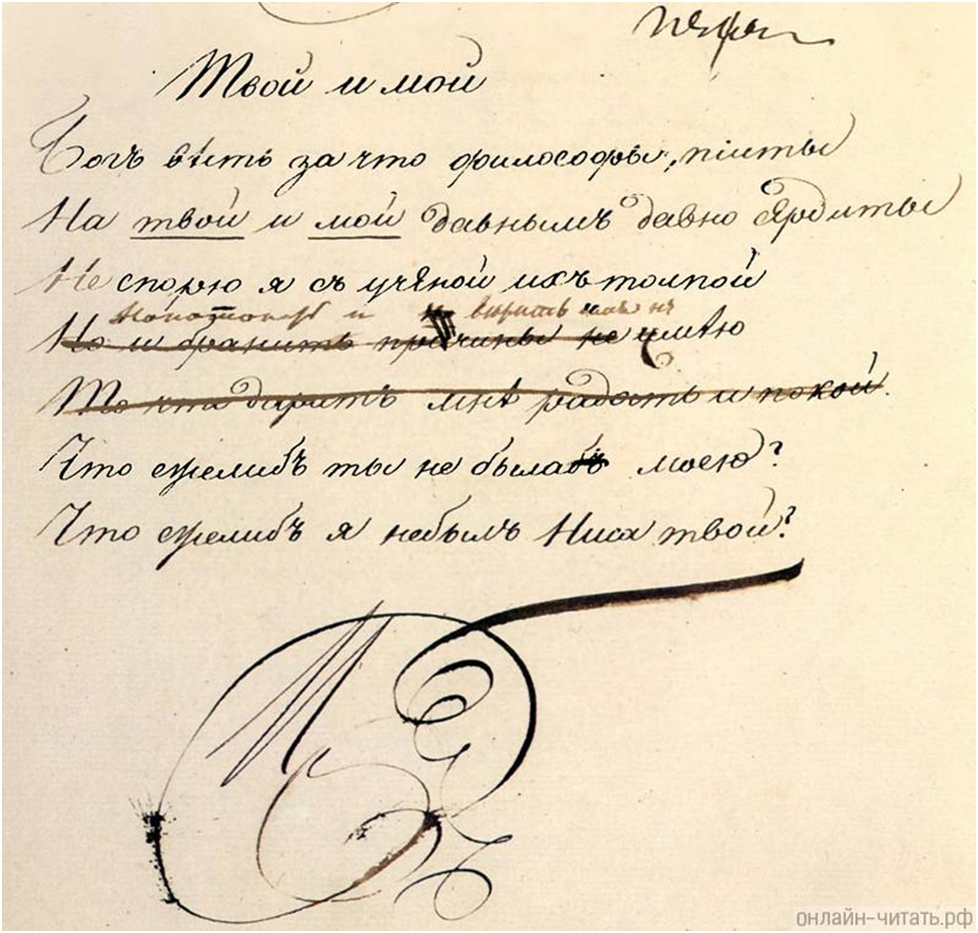 Твой и мой
Богъ вѣсть за что философы, піиты
На твой и мой давнымъ давно сердиты
Не спорю я съ учёной ихъ толпой
и вѣрить имъ не
Но и бранить причины не умѣю
То что даритъ мнѣ радость и покой.
Что ежелибъ ты не была моею?
Что ежелибъ я небылъ Ниса твой?
онлайн-читать.рф